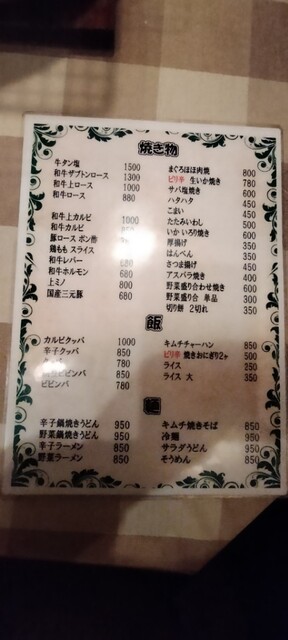 焼き物
牛タン塩 1500
和牛ザブトンロース 1300
和牛上ロース 1000
和牛ロース 880
和牛上カルビ 1000
和牛カルビ
豚ロース ポン酢
鶏もも スライス
和牛レバー 680
和牛ホルモン 680
上ミノ 800
国産三元豚 680
まぐろほほ肉焼 800
ピリ辛 生いか焼き 780
サバ塩焼き 600
ハタハタ 450
こまい 450
たたみいわし 500
いか いろり焼き 600
厚揚げ 350
はんぺん 350
さつま揚げ 450
アスパラ焼き 400
野菜盛り合わせ焼き 600
野菜盛り合 単品 300
切り餅 2切れ 350
飯
カルビクッパ 1000
辛子クッパ 850
780
ビビンバ 850
ビビンバ 780
キムチチャーハン 850
ピリ辛 焼きおにぎり2ヶ 500
ライス 250
ライス 大 350
麺
辛子鍋焼きうどん 950
野菜鍋焼きうどん 950
辛子ラーメン 850
野菜ラーメン 850
キムチ焼きそば 850
冷麺 950
サラダうどん 950
そうめん 850